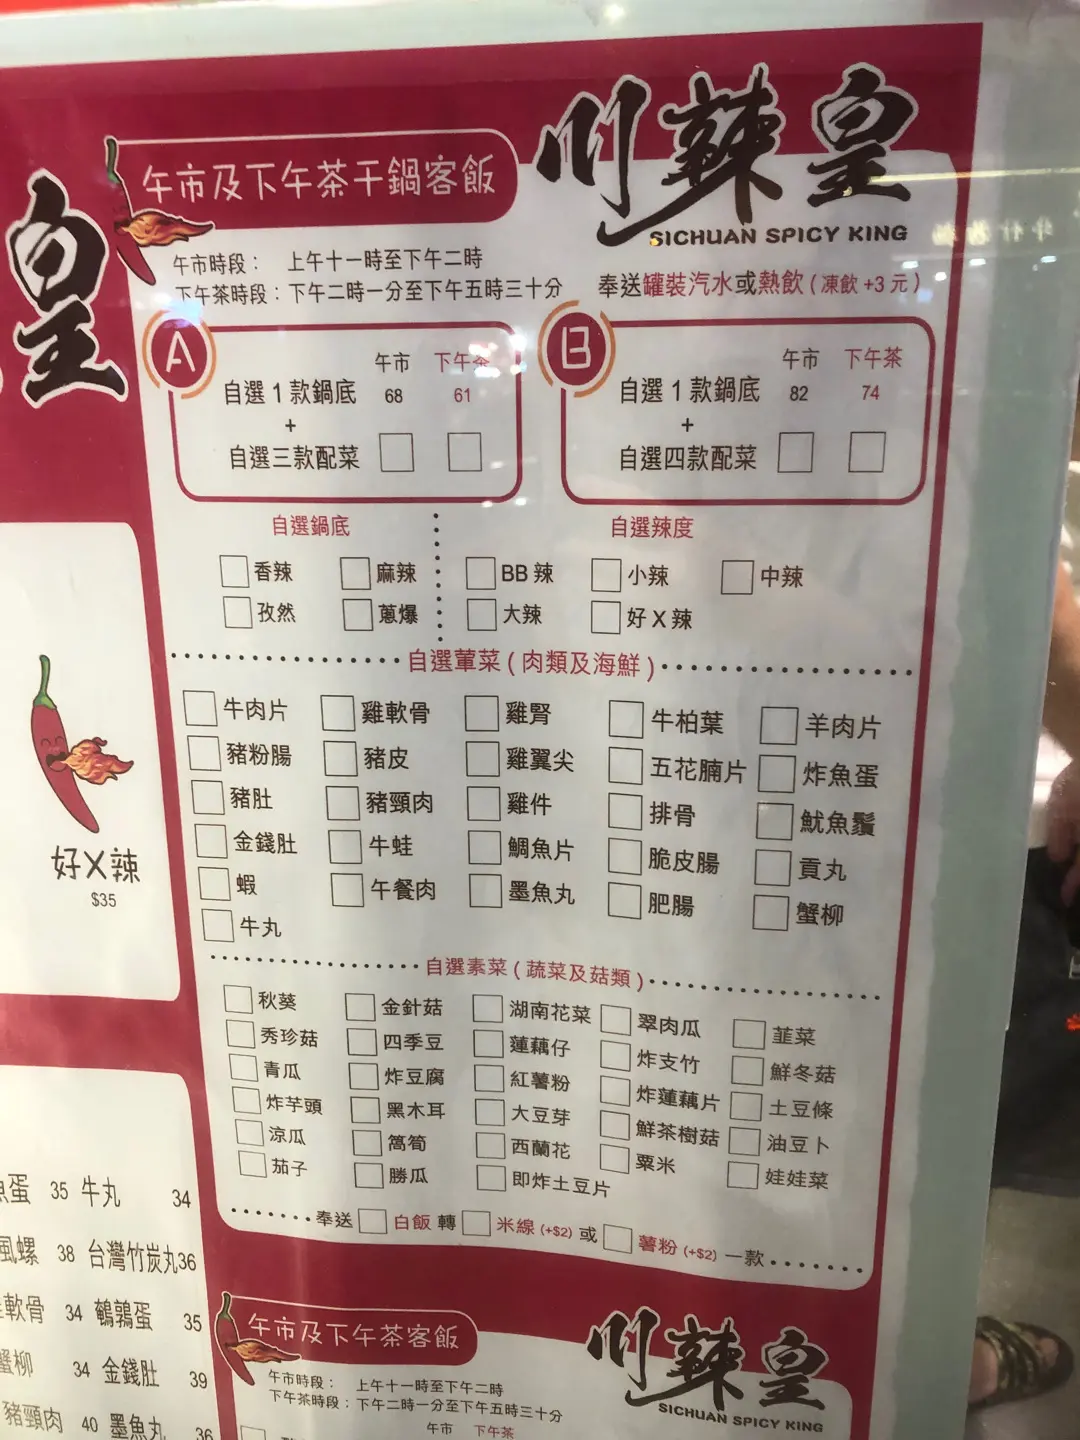 皇
午市及下午茶干鍋客飯
川辣皇
SICHUAN SPICY KING
午市時段： 上午十一時至下午二時
下午茶時段：下午二時一分至下午五時三十分
奉送罐裝汽水或熱飲 ( 凍飲 +3 元 )
A
午市 下午茶
自選 1 款鍋底 68 61
+
自選三款配菜
B
午市 下午茶
自選 1 款鍋底 82 74
+
自選四款配菜
自選鍋底
香辣 麻辣
孜然 蔥爆
自選辣度
BB 辣 小辣 中辣
大辣 好 X 辣
自選葷菜 ( 肉類及海鮮 )
牛肉片 雞軟骨 雞腎 牛柏葉 羊肉片
豬粉腸 豬皮 雞翼尖 五花腩片 炸魚蛋
豬肚 豬頸肉 雞件 排骨 魷魚鬚
金錢肚 牛蛙 鯛魚片 脆皮腸 貢丸
蝦 午餐肉 墨魚丸 肥腸 蟹柳
牛丸
自選素菜 ( 蔬菜及菇類 )
秋葵 金針菇 湖南花菜 翠肉瓜 韮菜
秀珍菇 四季豆 蓮藕仔 炸支竹 鮮冬菇
青瓜 炸豆腐 紅薯粉 炸蓮藕片 土豆條
炸芋頭 黑木耳 大豆芽 鮮茶樹菇 油豆卜
涼瓜 萵筍 西蘭花 粟米 娃娃菜
茄子 勝瓜 即炸土豆片
奉送 白飯 轉 米線 (+$2) 或 薯粉 (+$2) 一款
好X辣
$35
蛋 35 牛丸 34
風螺 38 台灣竹炭丸36
軟骨 34 鵪鶉蛋 35
蟹柳 34 金錢肚 39
豬頸肉 40 墨魚丸 36
午市及下午茶客飯
川辣皇
SICHUAN SPICY KING
午市時段： 上午十一時至下午二時
下午茶時段：下午二時一分至下午五時三十分
午市 下午茶